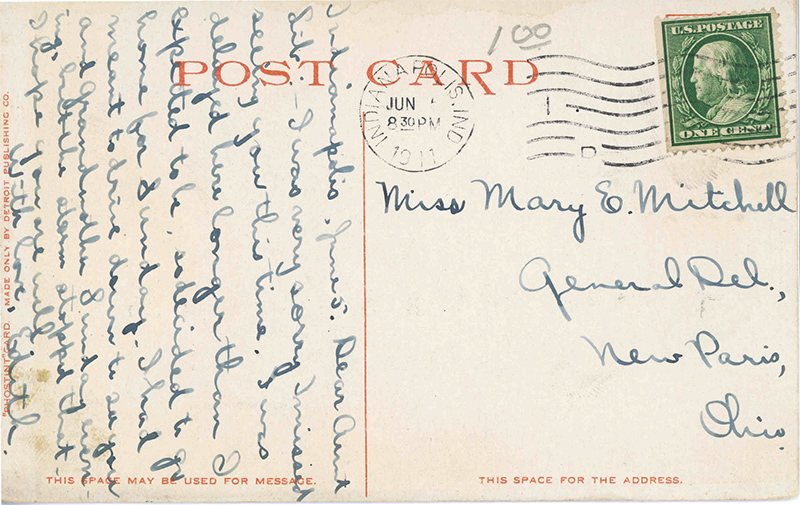 POST CARD
1.00
U.S. POSTAGE
ONE CENT
INDIANAPOLIS, IND.
JUN
8 30 PM
1911
D
Indianapolis, June 5. Dear Aunt
Lib – I was very sorry I missed
seeing you this time. I was
delayed here longer than I
expected to be, so decided to go
home for Sunday. I had
meant to drive down to see you
and Grandmother Sunday even-
ing, but the storm stopped that –
I hope you are well.
With love, Edith.
Miss Mary E. Mitchell
General Del.,
New Paris,
Ohio.
"PHOSTINT" CARD MADE ONLY BY DETROIT PUBLISHING CO.
THIS SPACE MAY BE USED FOR MESSAGE.
THIS SPACE FOR THE ADDRESS.